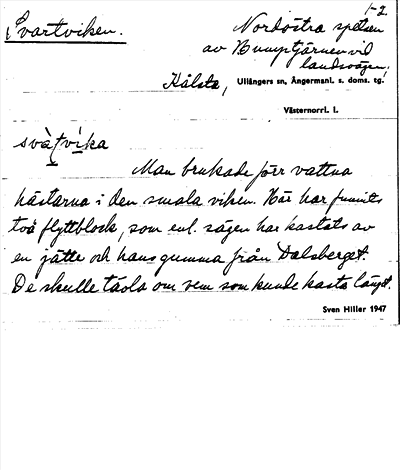 1-2
Svartviken.
Nordöstra spetsen
av Kumptjärnen vid
landsvägen,
Kålsta, Ullångers sn, Ångermanl. s. doms. tg.
Västernorrl. l.
svàt̠vi̠ka
Man brukade förr vattna
hästarna i den smala viken. Här har funnits
två flyttblock, som enl. sägen har kastats av
en jätte och hans gumma från Dalsberget.
De skulle tävla om vem som kunde kasta längst.
Sven Hiller 1947